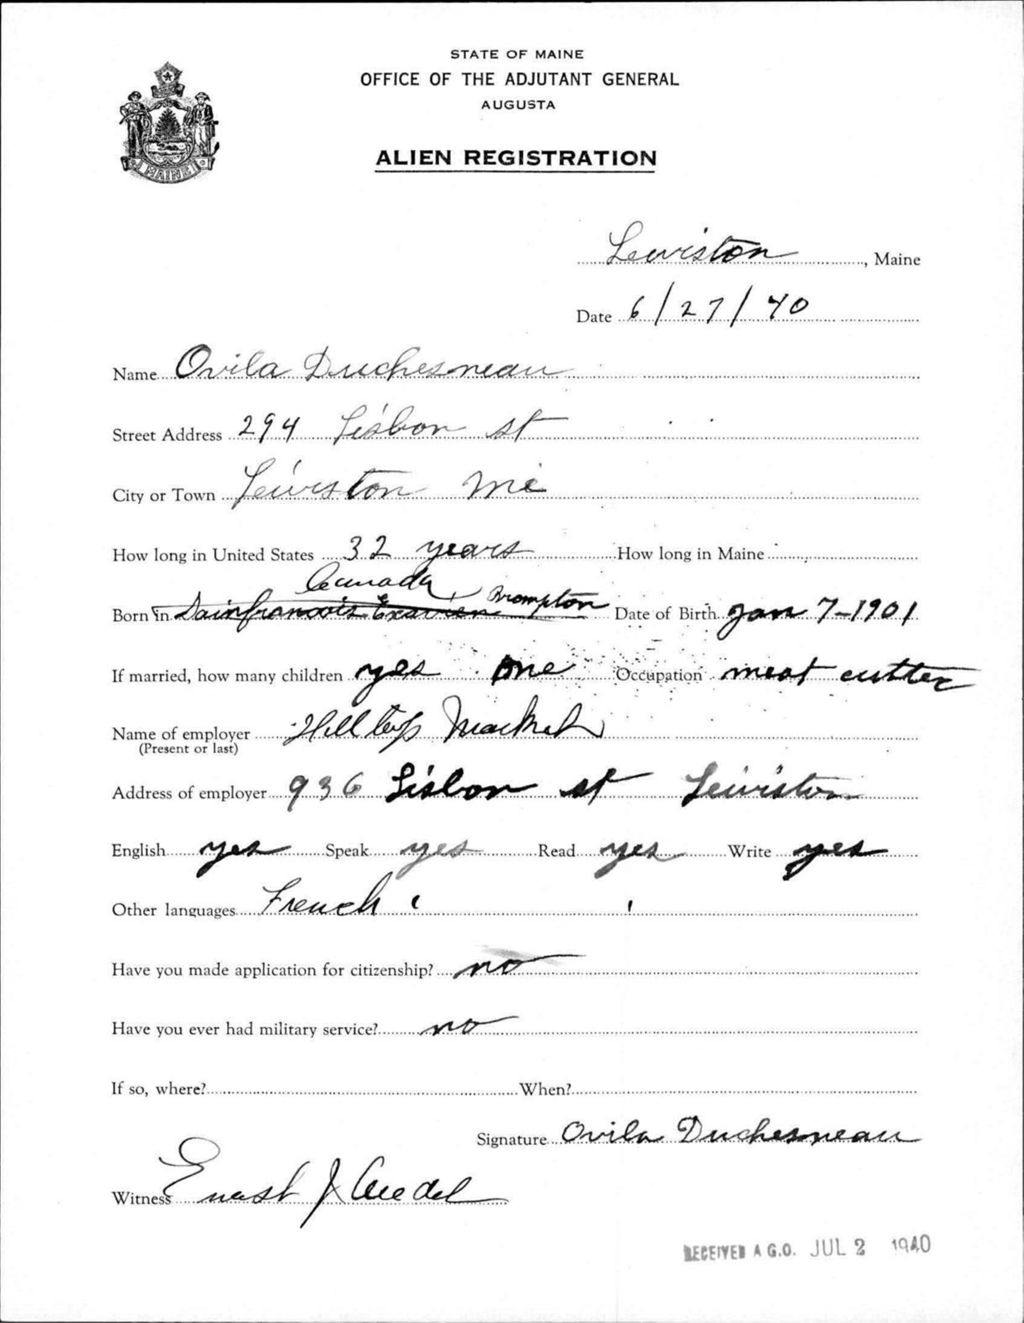 STATE OF MAINE
OFFICE OF THE ADJUTANT GENERAL
AUGUSTA
ALIEN REGISTRATION
MAINE
Lewiston, Maine
Date 6/27/40
Name Ovila Duchesneau
Street Address 294 Lisbon st
City or Town Lewiston Me
How long in United States 32 years How long in Maine
Canada, Brompton
Born in Date of Birth Jan 7-1901
If married, how many children yes one Occupation meat cutter
Name of employer Hill top Market
(Present or last)
Address of employer 936 Lisbon st Lewiston
English yes Speak yes Read yes Write yes
Other languages French
Have you made application for citizenship? no
Have you ever had military service? no
If so, where? When?
Signature Ovila Duchesneau
Witness J
RECEIVED A G.O. JUL 2 1940